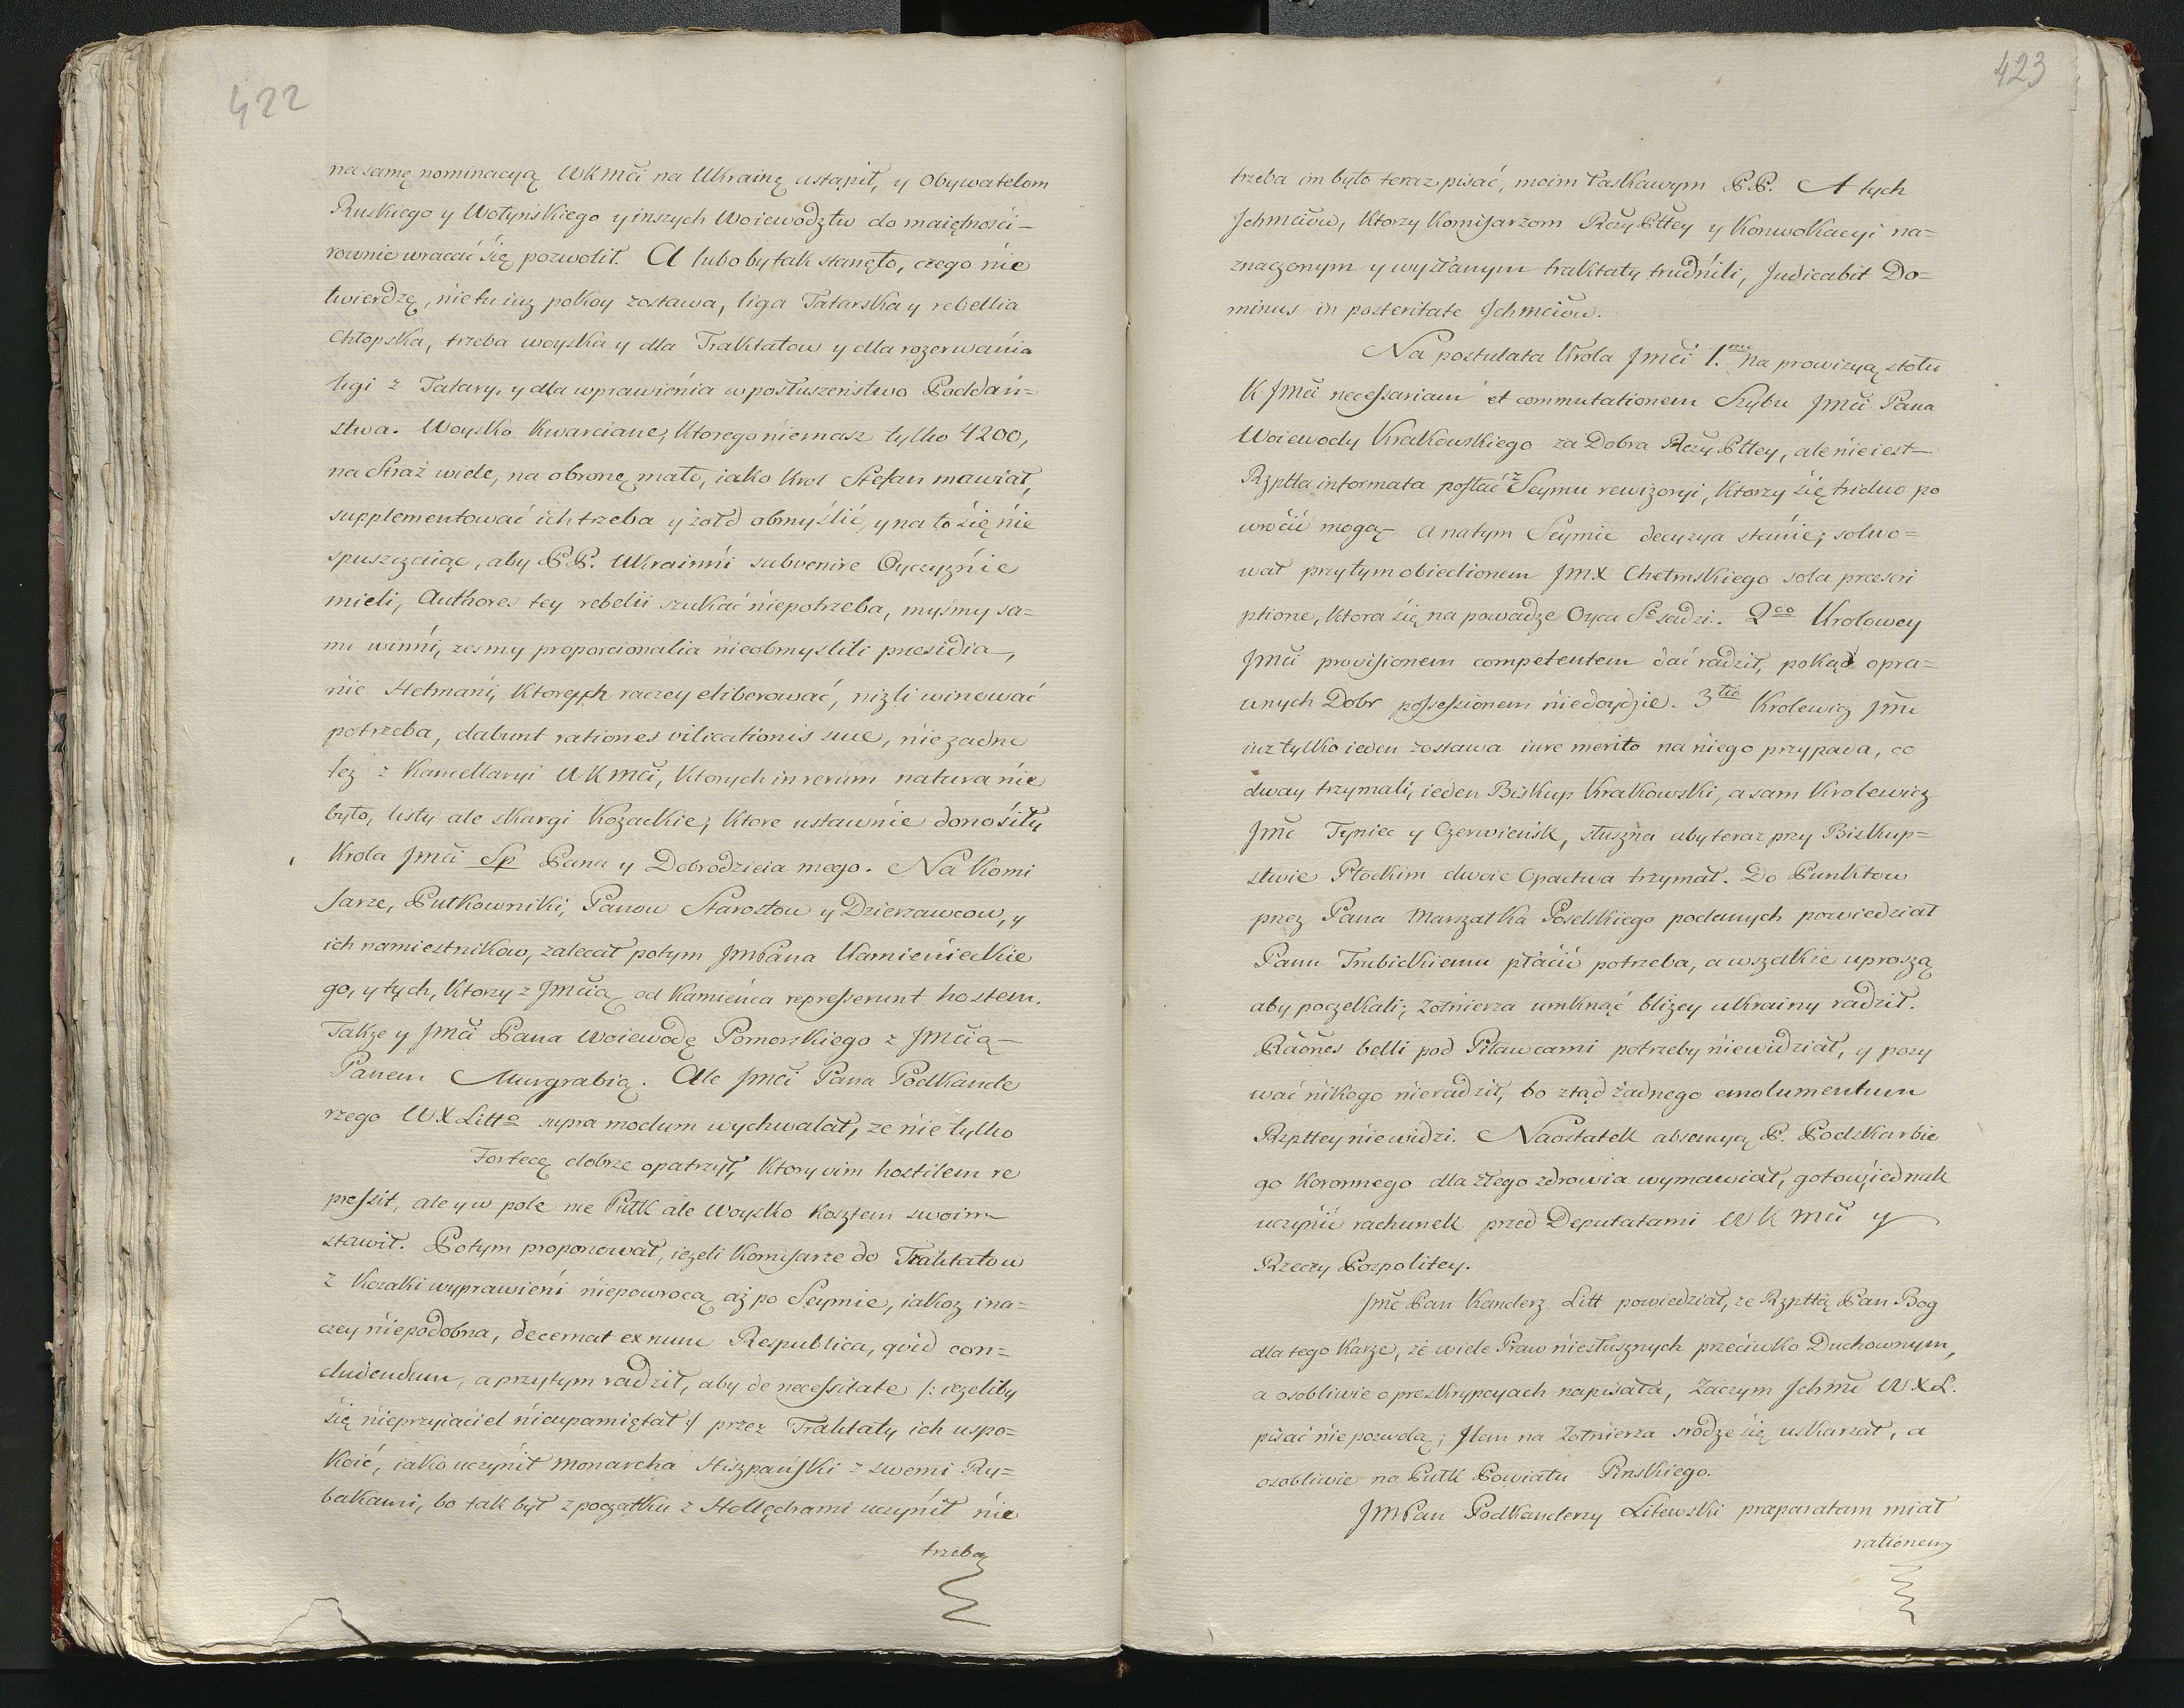 422
na samę nominacyą WKMći na Ukrainę ustąpił, y Obywatelom
Ruskiego y Wołyńskiego y inszych Woiewodztw do maiętnośći —
rownie wracać śię pozwolił. A lubo by tak stanęło, czego nie
twierdzę, nie tu iuz pokoy zostawa, liga Tatarska y rebellia
Chłopska, trzeba woyska y dla Traktatow y dla rozerwańia
ligi z Tatary, y dla wprawieńia w posłuszeństwo Poddań=
stwa. Woysko Kwarciane, ktorego niemasz tylko 4200,
na Straż wiele, na obronę mało, iako Krol Stefan mawiał,
supplementować ich trzeba y żołd obmyślić, y na to śię nie
spuszczaiąc, aby PP. Ukrainni subvenire Oyczyznie
mieli, Authores tey rebelii szukać niepotrzeba, myśmy sa=
mi winni, zesmy proporcionalia nieobmyslili presidia,
nie Hetmani, Ktorych raczey eliberować, niżli winować
potrzeba, dabunt rationes vilicationis sue, nie zadne
tez z Kancellaryi WKMći, Ktorych in rerum natura nie
było, listy ale skargi Kozackie, Ktore ustawnie donośiły
Krola Jmći Sp Pana y Dobrodzieia mego. Na Komi
sarze, Pułkowniki, Panow Starostow y Dzierzawcow, y
ich namiestnikow, zalecał potym JmPana Kamienieckie
go, y tych, Ktorzy z Jmćią od Kamieńca represserunt hostem.
Takze y Jmći Pana Woiewodę Pomorskiego z Jmćią —
Panem Murgrabią. Ale Jmći Pana Podkancle
rzego WXLitto supra modum wychwalał, ze nie tylko
Fortecę dobrze opatrzył, Ktory vim hostilem re
pressit, ale y w pole nie Pułk ale Woysko Kosztem swoim
stawił. Potym proponował, iezeli Komisarze do Traktatow
z Kozaki wyprawieni niepowrocą aż po Seymie, iakoz ina=
czey niepodobna, decernat ex nunc Respublica, qvid con=
cludendum, a przytym radził, aby de necessitate /: iezeliby
się nieprzyiaciel nieupamiętał :/ przez Traktaty ich uspo=
koić, iako uczynił Monarcha Hiszpański z swemi Ry=
bakami, bo tak był z początku z Hollędrami uczynił nie
trzeba
423
trzeba im było teraz pisać, moim Łaskawym PP. A tych
Ichmćiow, Ktorzy Komisarzom Rzczy Pttey y Konwokacyi na=
znaczonym y wysłanym traktaty trudnili, Judicabit Do=
minus in posteritate Ichmćiow.
Na postulata Krola Jmći 1.mo na prowizyą stołu
K Jmći necessariam et commutationem Szybu Jmći Pana
Woiewody Krakowskiego za Dobra Rzczy Pttey, ale nie iest —
Rzptta informata posłać z Seymu rewizoryi, Ktorzy śię triduo po
wrocić mogą — a na tym Seymie decyzya stanie; solwo=
wał przytym obiectionem JmX Chełmskiego sola praescri
ptione, Ktora śię na powadze Oyca Sº sadzi. 2do Krolowey
Jmći provisionem competentem dać radził, pokąd opra=
wnych Dobr possessionem niedoydzie. 3tio Krolewicz Jmć
iuz tylko ieden zostawa iure merito na niego przypada, co
dway trzymali, ieden Biskup Krakowski, a sam Krolewicz
Jmć Tyniec y Czerwieńsk, słuszna aby teraz przy Biskup=
stwie Płockim dwoie Opactwa trzymał. Do Punktow
przez Pana Marszałka Poselskiego podanych powiedział
Panu Trubickiemu płacić potrzeba, a wszakże uproszą
aby poczekali; Zołnierza umknąć bliżey ukrainy radził.
Raones belli pod Piławcami potrzeby niewidział, y pozy
wać nikogo nieradził, bo ztąd żadnego emolumentum
Rzpttey niewidzi. Naostatek absencyą P. Podskarbie
go Koronnego dla złego zdrowia wymawiał, gotow, iednak
uczynić rachunek przed Deputatami WKMći y
Rzeczy Pospolitey.
Jmć Pan Kanclerz Litt powiedział, że Rzpttą Pan Bog
dla tego karze, że wiele Praw niesłusznych przećiwko Duchownym,
a osobliwie o preskrypcyach napisała, Zaczym Ichmć WXL.
pisać nie pozwolą; Item na Zołnierza srodze się uskarzał, a
osobliwie na Pułk Powiatu Pinskiego.
JmPan Podkanclerzy Litewski praeparatam miał
rationem